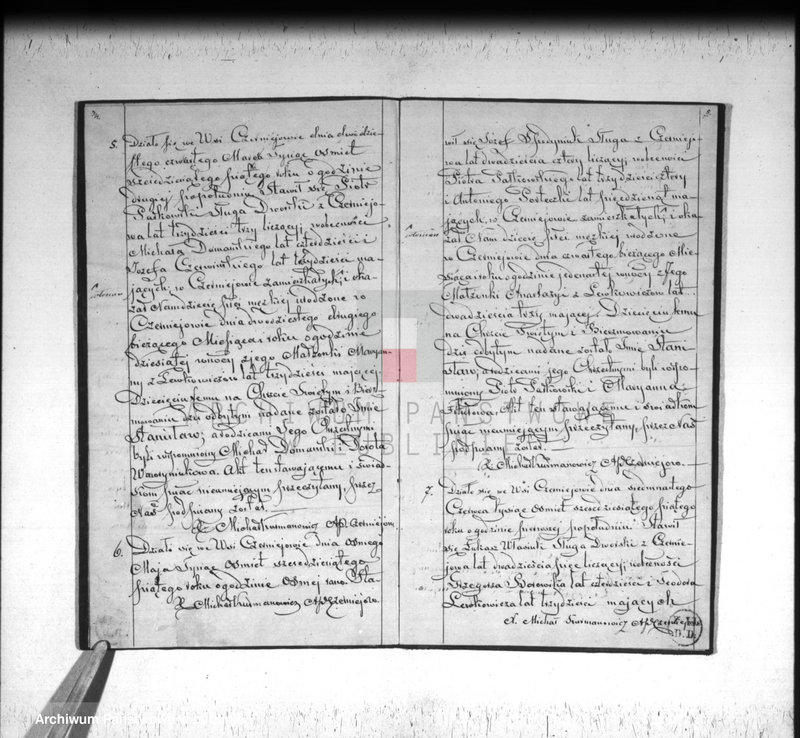 5. Działo się we Wsi Czerniejowie dnia dwudzie-
stego czwartego Marca Tysiąc Osmset
sześćdziesiątego piątego roku o godzinie
drugiey po południu; Stawił się Piotr
Patkowski Sługa Dworski z Czerniejo-
wa lat trzydzieści trzy liczący, w obecności
Michała Domańskiego lat czterdzieści i
Jozefa Czerwińskiego lat trzydzieści ma-
jących, w Czerniejowie zamieszkałych; i oka-
zał Nam dziecie płci męzkiej urodzone w
Czerniejowie dnia dwudziestego drugiego
bieżącego Miesiąca i roku o godzinie
dziesiątej w nocy z jego Małżonki Maryan-
ny z Lewkowiczów lat trzydzieści mającej
Dziecięciu temu na Chrzcie Świętym i Bierz-
mowaniu dziś odbytym nadane zostało Imie
Stanisław; a rodzicami Jego Chrzestnymi
byli wspomniony Michał Domański i Dorota
Akt ten stawającemu i Świad-
kom pisać nieumiejącym przeczytany, przez
Nas podpisany został.
X. Michał Kurmanowicz
6. Działo się we Wsi Czerniejowie dnia osmego
Maja Tysiąc Osmset sześćdziesiątego
piątego roku o godzinie osmej rano. Sta-
X. Michał Kurmanowicz
wił się Józef Sługa z Czerniejo-
wa lat dwadzieścia cztery liczący, w obecności
Piotra Patkowskiego lat trzydzieści cztery
i Antoniego lat pięćdziesiąt ma-
jących, w Czerniejowie zamieszkałych; i oka-
zał Nam dziecie płci męzkiej urodzone
w Czerniejowie dnia czwartego bieżącego Mie-
siąca i roku o godzinie jedenastej w nocy z Jego
Małżonki Anastazyi z Lewkowiczów lat
dwadzieścia trzy mającej. Dziecięciu temu
na Chrzcie Świętym i Bierzmowaniu
dziś odbytym nadane zostało Imie Stani-
sław; a rodzicami jego Chrzestnymi byli wspo-
mniony Piotr Patkowski i Maryanna
Akt ten stawającemu i świadkom
pisać nieumiejącym przeczytany, przez Nas
podpisany został.
X. Michał Kurmanowicz
7. Działo się we Wsi Czerniejowie dnia siedmnastego
Czerwca Tysiąc osmset sześćdziesiątego piątego
roku o godzinie pierwszej po południu; Stawił
się Łukasz Sługa Dworski z Czernie-
jowa lat dwadzieścia pięć liczący w obecności
Grzegorza lat czterdzieści i Teodora
Lewkowicza lat trzydzieści mających
X. Michał Kurmanowicz
Archiwum